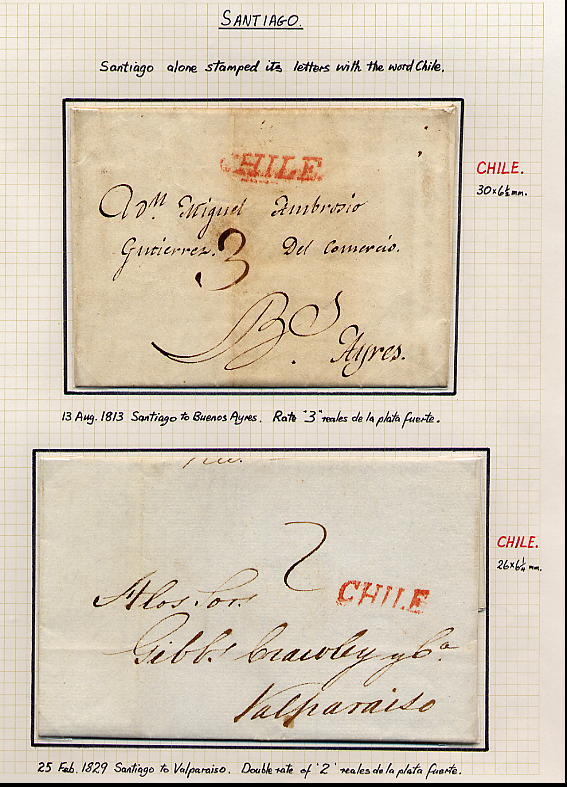 SANTIAGO.
Santiago alone stamped its letters with the word Chile.
CHILE
CHILE.
30×6½mm.
A Dⁿ Miguel Ambrosio
Gutierrez. Del Comercio.
3
Bˢ
Ayres.
13 Aug. 1813 Santiago to Buenos Ayres. Rate "3" reales de la plata fuerte.
2
CHILE
CHILE.
26×6¼mm.
A los Sors
Gibbs Crawley y Cᵃ
Valparaiso
25 Feb. 1829 Santiago to Valparaiso. Double rate of "2" reales de la plata fuerte.